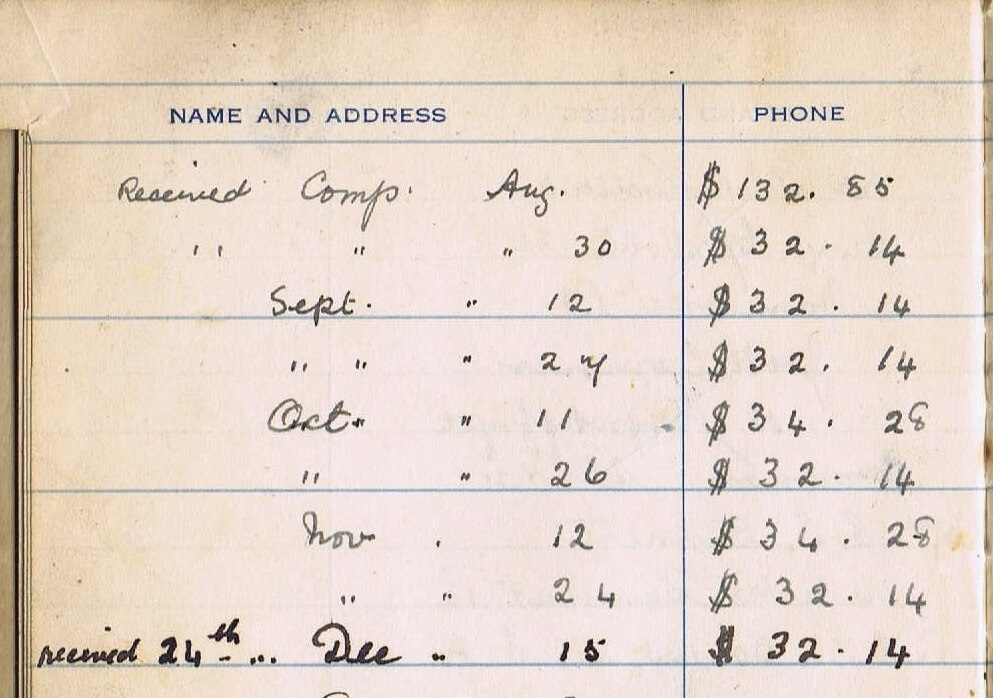 NAME AND ADDRESS PHONE
Received Comp. Aug. $ 132. 85
" " " 30 $ 32. 14
Sept. " 12 $ 32. 14
" " " 27 $ 32. 14
Oct. " 11 $ 34. 28
" " 26 $ 32. 14
Nov . 12 $ 34. 28
" " 24 $ 32. 14
received 24th ... Dec " 15 $ 32. 14